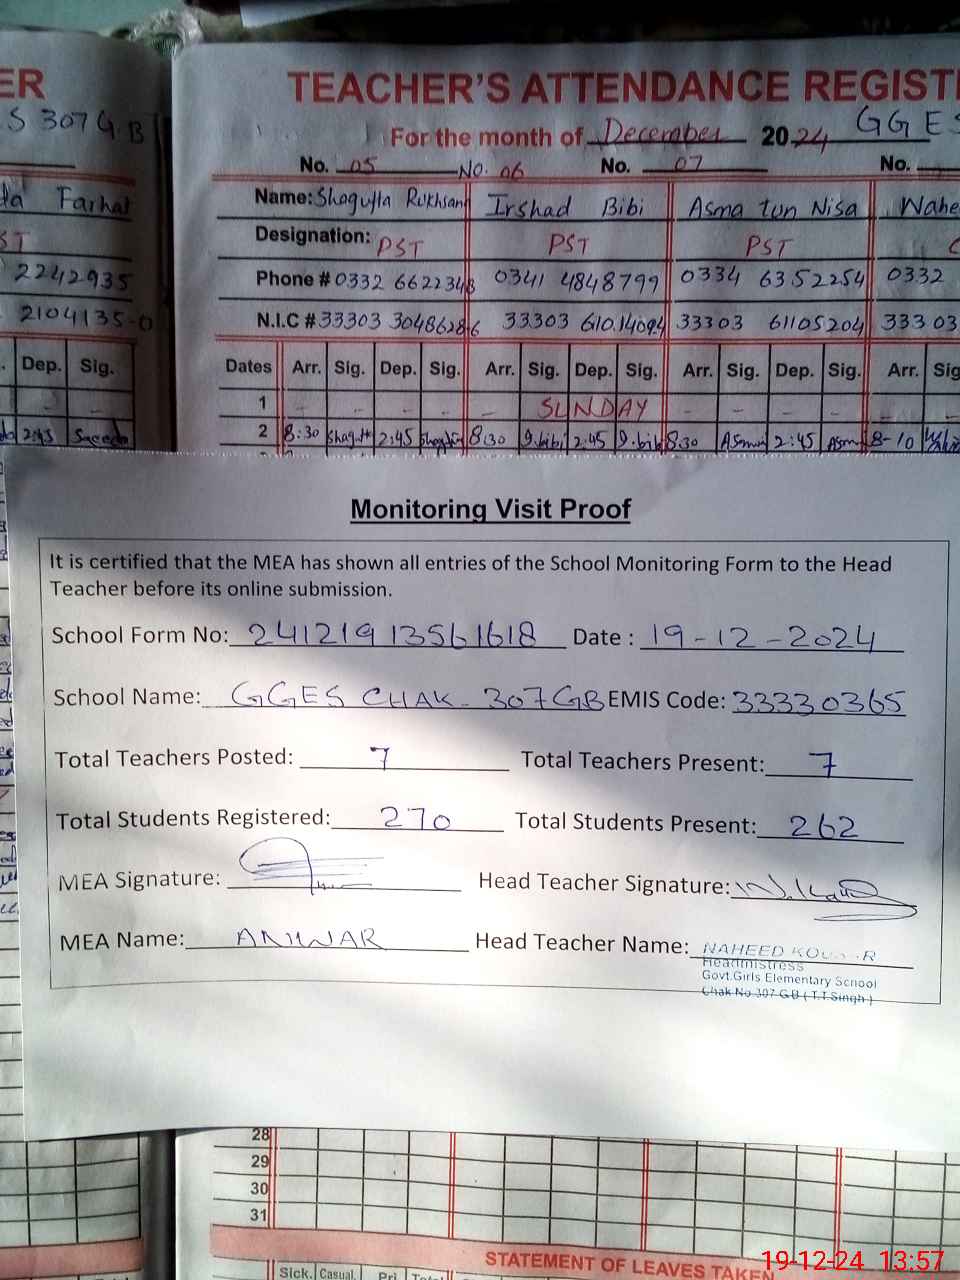 ER
S 307 G.B
Farhat
ST
2242935
2104135-0
Dep. Sig.
2:45 Saeeda
TEACHER'S ATTENDANCE REGIST
For the month of December 2024 GGES
No. 05 No. 06 No. 07 No.
Name: Shagufta Rukhsana Irshad Bibi Asma tun Nisa Wahe
Designation: PST PST PST
Phone # 0332 6622348 0341 4848799 0334 6352254 0332
N.I.C # 33303 3048628-6 33303 610.1409.4 33303 61105204 333 03
Dates Arr. Sig. Dep. Sig. Arr. Sig. Dep. Sig. Arr. Sig. Dep. Sig. Arr. Sig
1 SUNDAY
2 8:30 2:45 8:30 I.bibi 2:45 I.bibi 8:30 Asma 2:45 Asma 8-10
Monitoring Visit Proof
It is certified that the MEA has shown all entries of the School Monitoring Form to the Head
Teacher before its online submission.
School Form No: 24121913561618 Date : 19-12-2024
School Name: GGES CHAK- 307GB EMIS Code: 33330365
Total Teachers Posted: 7 Total Teachers Present: 7
Total Students Registered: 270 Total Students Present: 262
MEA Signature: Head Teacher Signature:
MEA Name: ANWAR Head Teacher Name: NAHEED KOUSAR
Headmistress
Govt.Girls Elementary School
Chak No 307 G.B ( T.T.Singh )
28
29
30
31
STATEMENT OF LEAVES TAKEN
Sick. Casual. Pri Total
19-12-24 13:57